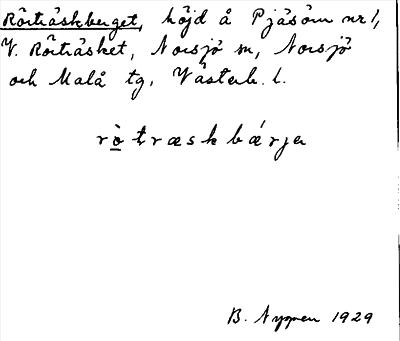 Rörträskberget, höjd å Pjäsörn nr 1,
V. Rörträsket, Norsjö sn, Norsjö
och Malå tg, Västerb. l.
rò̱træskbǽrjɐ
B. Nygren 1929